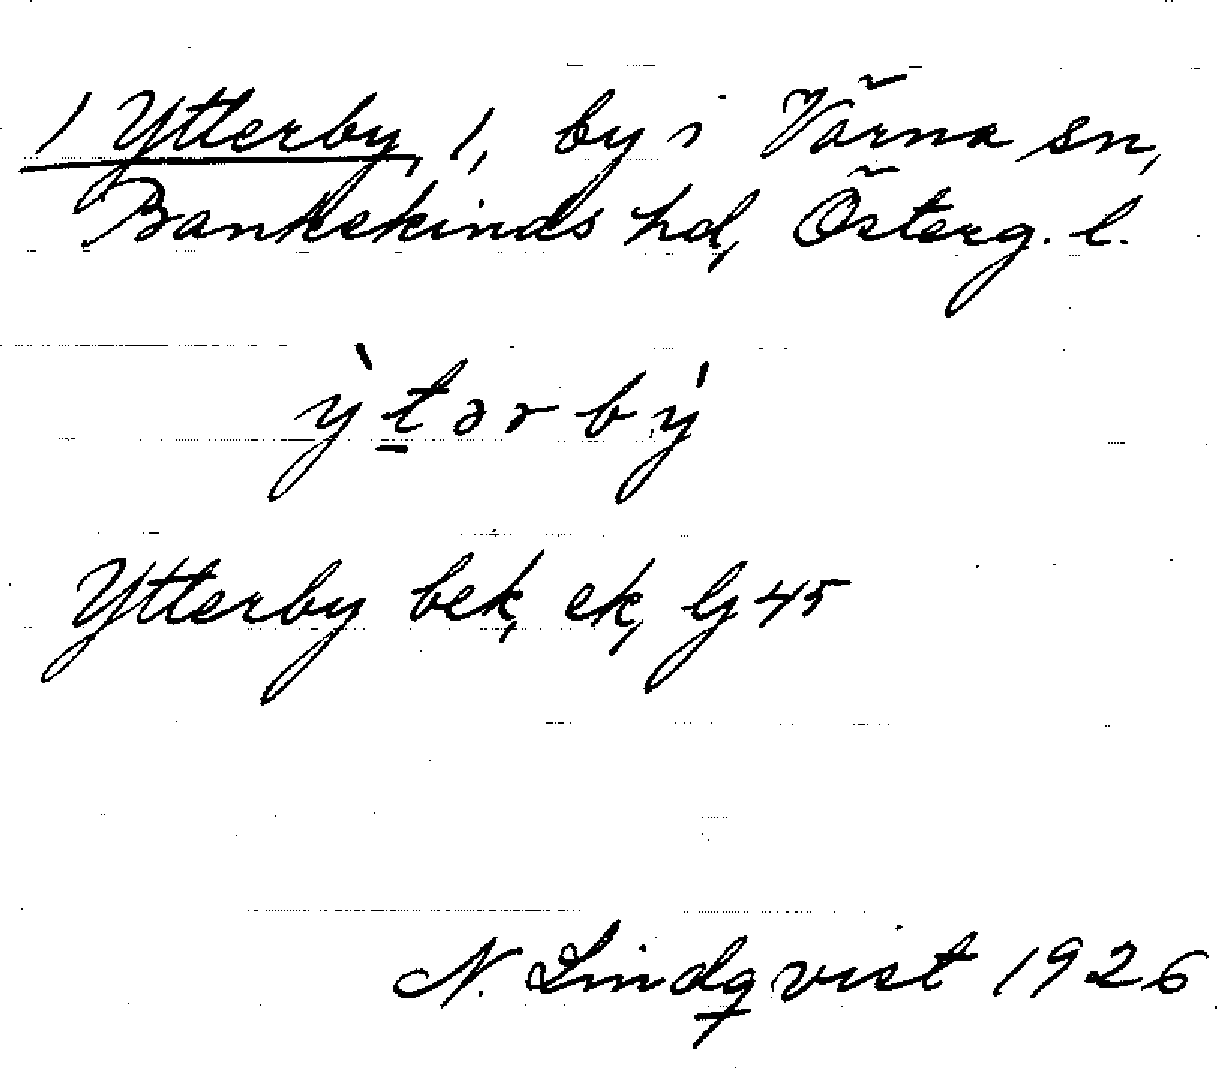 1 Ytterby, 1, by i Värna sn,
Bankekinds hd, Österg. l.
y̏̀t̲ərbý
Ytterby bek, ek, Gj 45
N. Lindqvist 1926